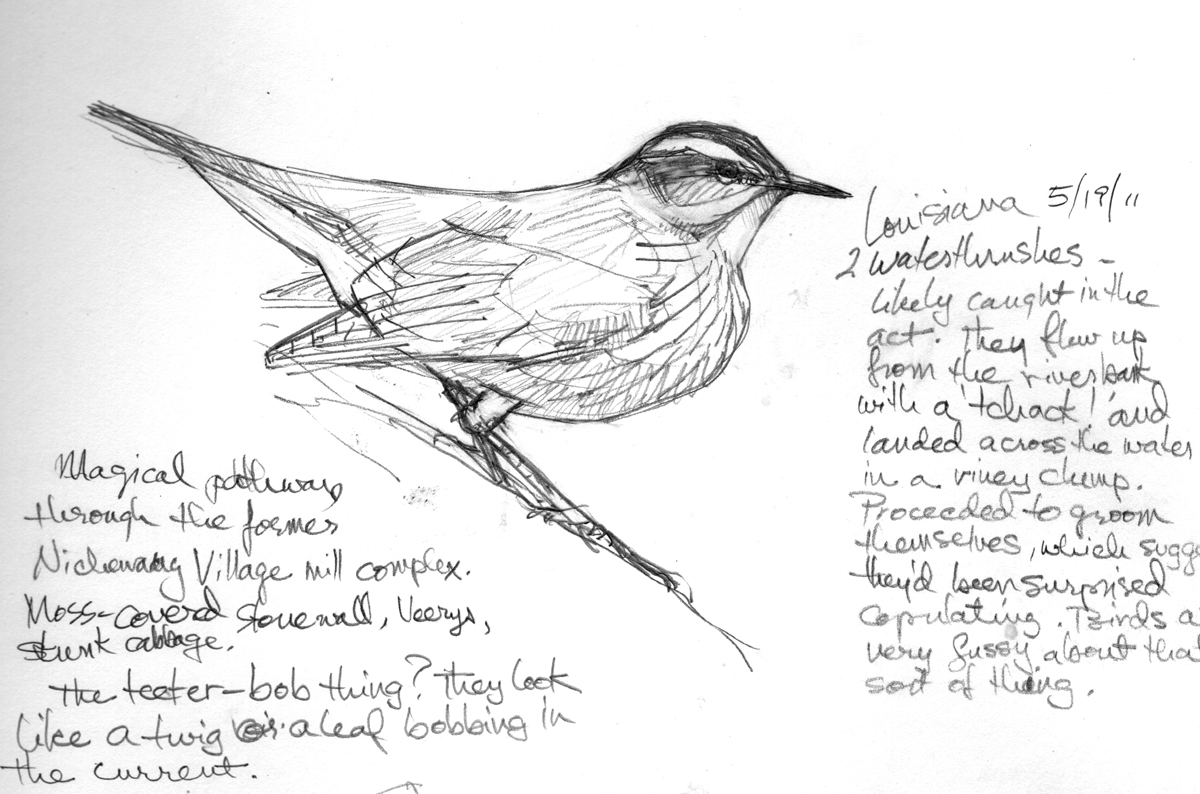 Louisiana 5/19/11
2 waterthrushes -
likely caught in the
act. They flew up
from the riverbank
with a 'tchack!' and
landed across the water
in a viney clump.
Proceeded to groom
themselves, which sugge
they'd been surprised
copulating. Birds a
very fussy about that
sort of thing.
Magical pathway
through the former
Nichewaug Village mill complex.
Moss-covered stonewall, Veerys,
skunk cabbage.
The teeter-bob thing? They look
like a twig or a leaf bobbing in
the current.